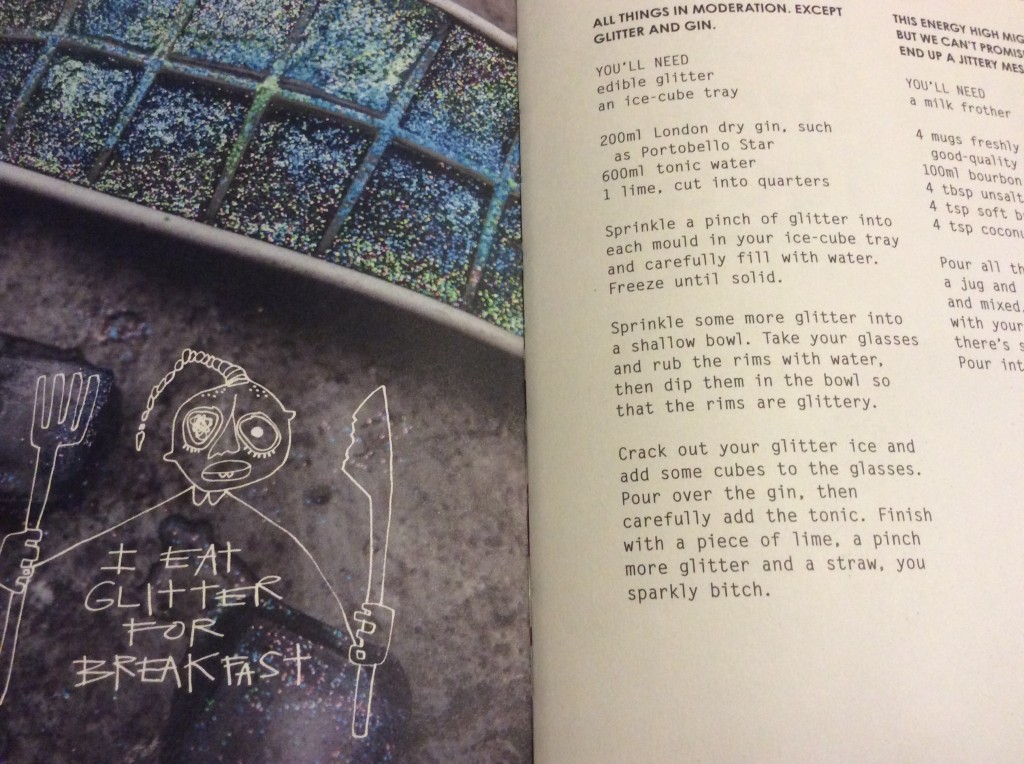 I EAT
GLITTER
FOR
BREAKFAST
ALL THINGS IN MODERATION. EXCEPT
GLITTER AND GIN.
YOU'LL NEED
edible glitter
an ice-cube tray
200ml London dry gin, such
as Portobello Star
600ml tonic water
1 lime, cut into quarters
Sprinkle a pinch of glitter into
each mould in your ice-cube tray
and carefully fill with water.
Freeze until solid.
Sprinkle some more glitter into
a shallow bowl. Take your glasses
and rub the rims with water,
then dip them in the bowl so
that the rims are glittery.
Crack out your glitter ice and
add some cubes to the glasses.
Pour over the gin, then
carefully add the tonic. Finish
with a piece of lime, a pinch
more glitter and a straw, you
sparkly bitch.
THIS ENERGY HIGH
BUT WE CAN'T
END UP A JITTERY
YOU'LL NEED
a milk frother
4 mugs freshly
good-quality
100ml bourbon
4 tbsp
4 tsp soft
4 tsp
Pour all
a jug and
and mixed.
with your
there's
Pour